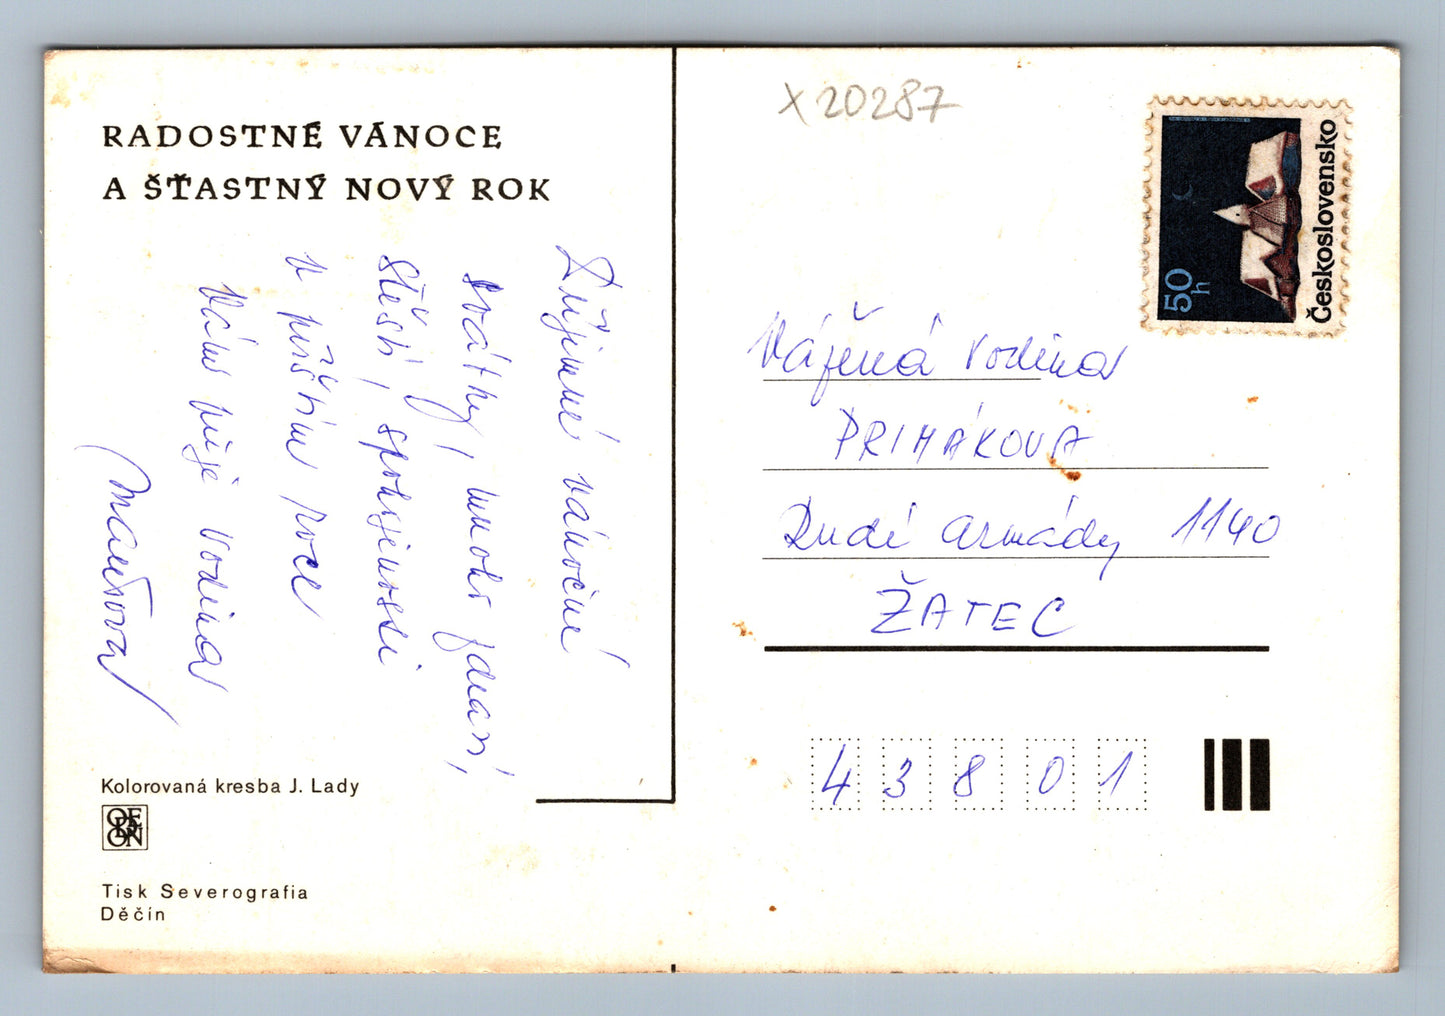 RADOSTNÉ VÁNOCE
A ŠŤASTNÝ NOVÝ ROK
Příjemné vánoční
svátky, mnoho zdraví,
štěstí, spokojenosti
v příštím roce
Vám přeje rodina
Kolorovaná kresba J. Lady
ODEON
Tisk Severografia
Děčín
X 20287
50 h
Československo
Vážená rodina
PRIMÁKOVA
Rudé armády 1140
ŽATEC
43801